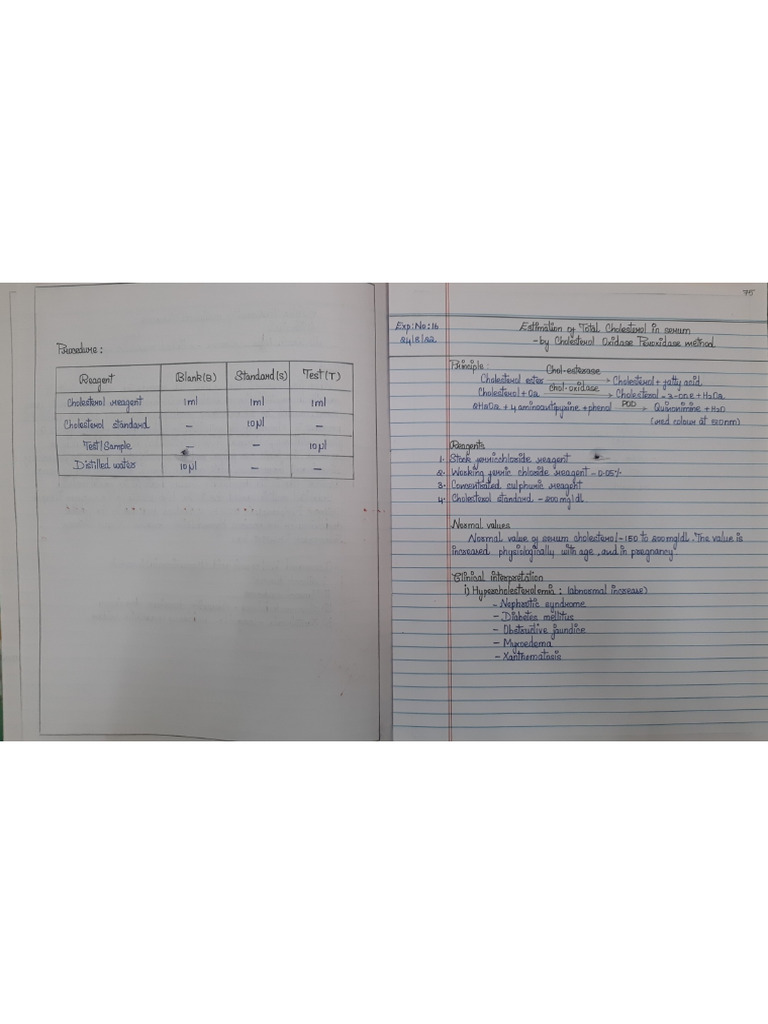 Procedure :
Reagent Blank(B) Standard(S) Test(T)
Cholesterol reagent 1ml 1ml 1ml
Cholesterol standard – 10 µl –
Test/Sample – – 10 µl
Distilled water 10 µl – –
75
Exp: No: 16
24/8/22
Estimation of Total Cholesterol in serum
- by Cholesterol Oxidase Peroxidase method
Principle
Chol-esterase
Cholesterol ester → Cholesterol + fatty acid
Chol-oxidase
Cholesterol + O2 → Cholesterol - 3-one + H2O2
POD
2H2O2 + 4 aminoantipyrine + phenol → Quinonimine + H2O
(red colour at 510nm)
Reagents
1. Stock ferricchloride reagent
2. Working ferric chloride reagent - 0.05%
3. Concentrated sulphuric reagent
4. Cholesterol standard - 200mg/dl
Normal values
Normal value of serum cholesterol - 150 to 200mg/dl. The value is
increased physiologically with age, and in pregnancy
Clinical interpretation
i) Hypercholesterolemia : (abnormal increase)
- Nephrotic syndrome
- Diabetes mellitus
- Obstructive jaundice
- Myxoedema
- Xanthomatosis